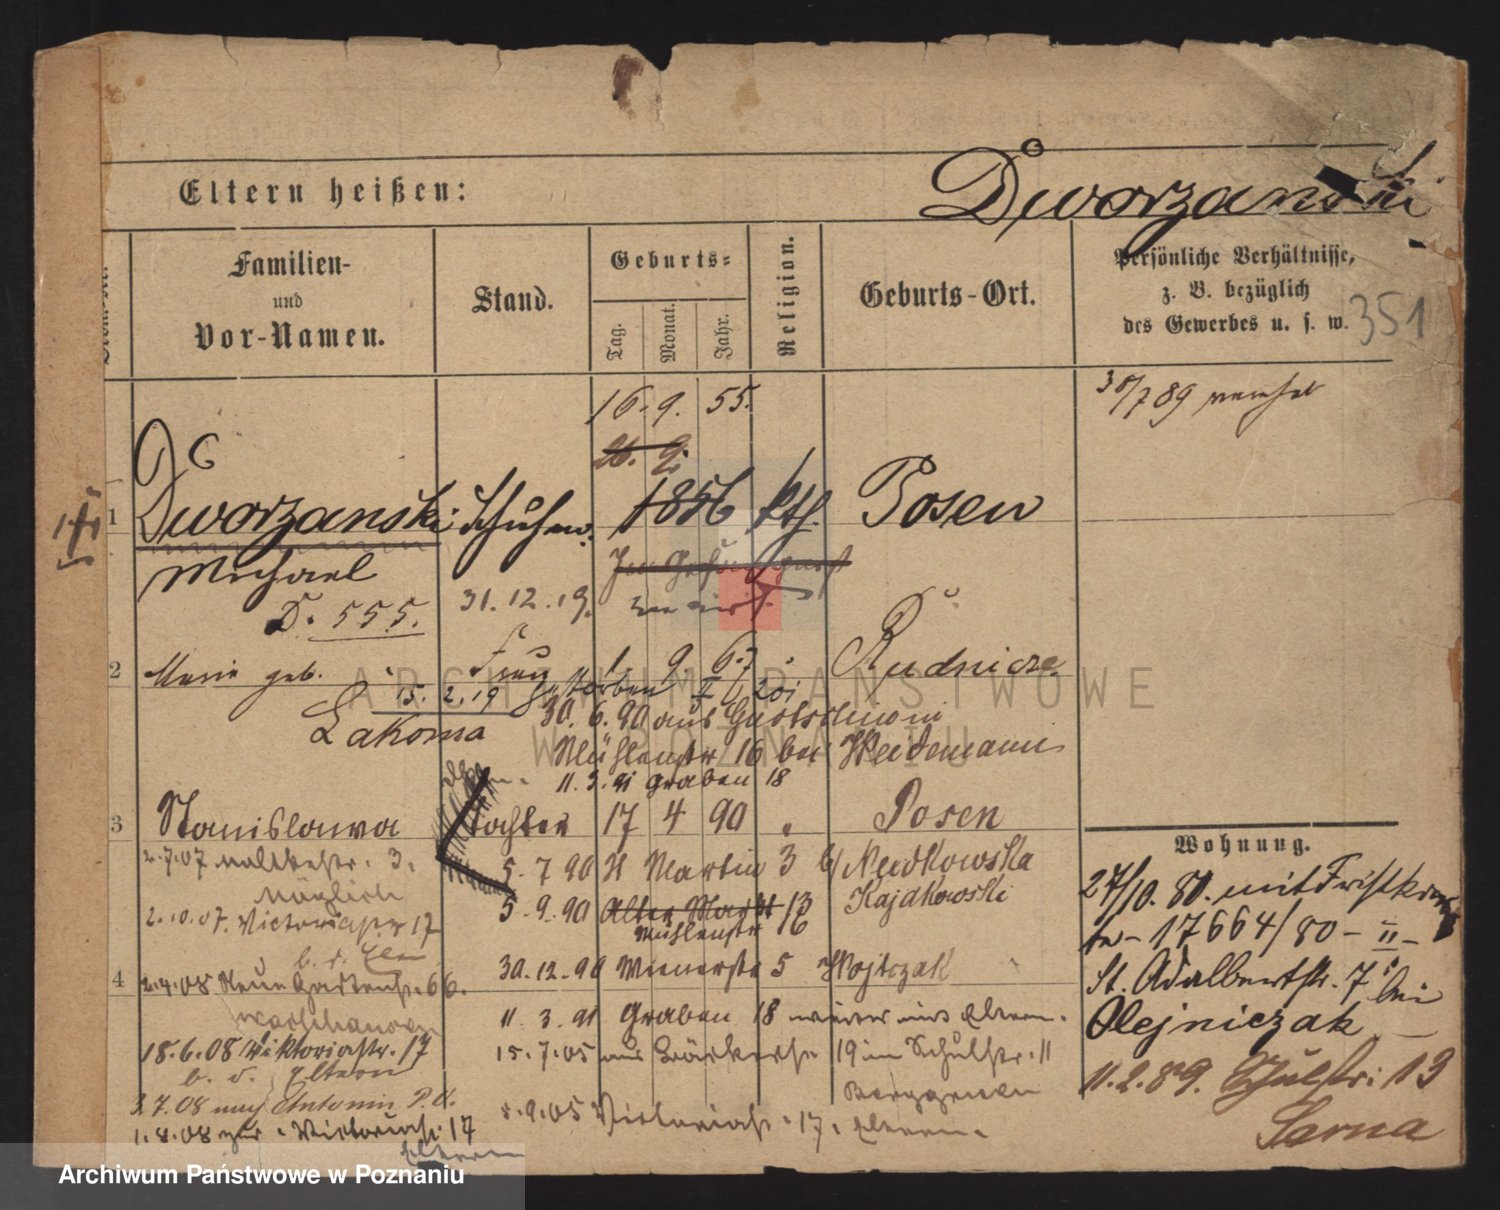 Dworzanski
Eltern heißen:
Familien-
und
Vor-Namen.
Stand.
Geburts-
Tag.
Monat.
Jahr.
Religion.
Geburts-Ort.
Persönliche Verhältnisse,
z. B. bezüglich
des Gewerbes u. s. w.
351
30/7 89
16. 9. 55.
26. 9.
1
Dworzanski Schuhm. 1856 kth. Posen
Michael
D. 555.
31.12.19.
2
Marie geb. Frau 1 9 67 Rudnicze
15.2.19 gestorben
Lakoma
30.6.90 aus
Mühlenstr 16 bei Weidemann
11.3.91 Graben 18
3
Stanislawa Tochter 17 4 90 Posen
2.7.07 3.
5.7.90 H Martin 3 b/ Neudkowska
5.9.90 Alter Markt 13 Kajdkowski
Mühlenstr 16
2.10.07. Victoriastr 17
b. d.
30.12.90 Wienerstr 5 Wojtczak
4
2.4.08 Neue Gartenstr. 66.
11.3.91 Graben 18 Eltern.
18.6.08 Viktoriastr. 17
b. d. Eltern
15.7.05 19 im Schulstr. 11
3.7.08 nach Antonin P. O.
5.9.05 Victoriastr. 17. Eltern.
1.8.08 zur Victoriastr. 17
Eltern
Wohnung.
27/10. 80. mit
17664/80 - II -
St. Adalbertstr. 7 bei
Olejniczak
11.2.89. Schulstr: 13
Sarna
ARCHIWUM PAŃSTWOWE
W POZNANIU
Archiwum Państwowe w Poznaniu